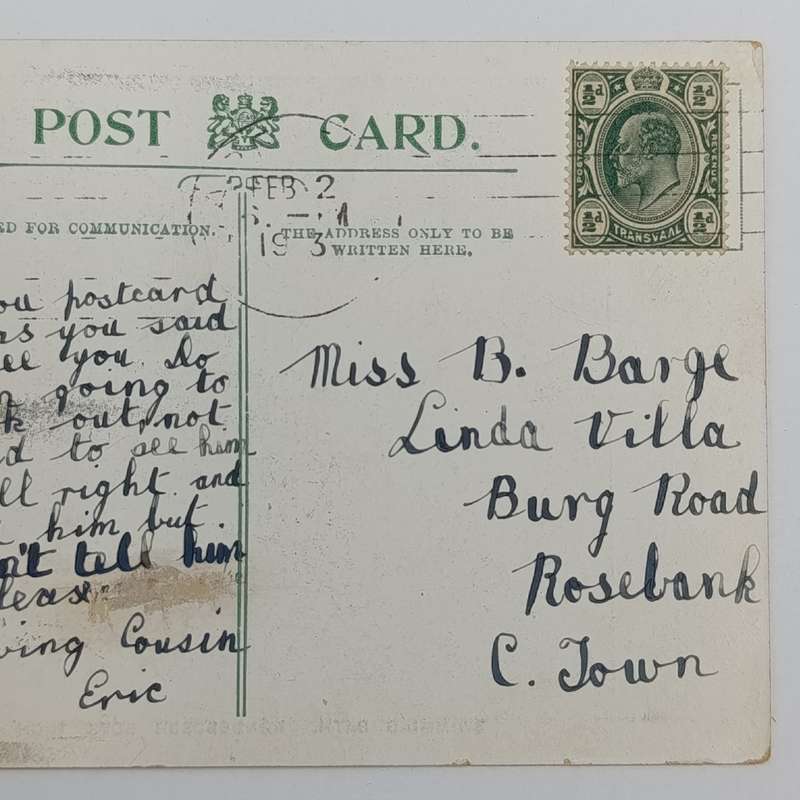 POST CARD.
FEB 2
19 3
FOR COMMUNICATION.
THE ADDRESS ONLY TO BE
WRITTEN HERE.
½d ½d
POSTAGE
REVENUE
½d ½d
TRANSVAAL
you postcard
as you said
you do
going to
out, not
to see him
right and
him but
tell him
ving Cousin
Eric
Miss B. Barge
Linda Villa
Burg Road
Rosebank
C. Town